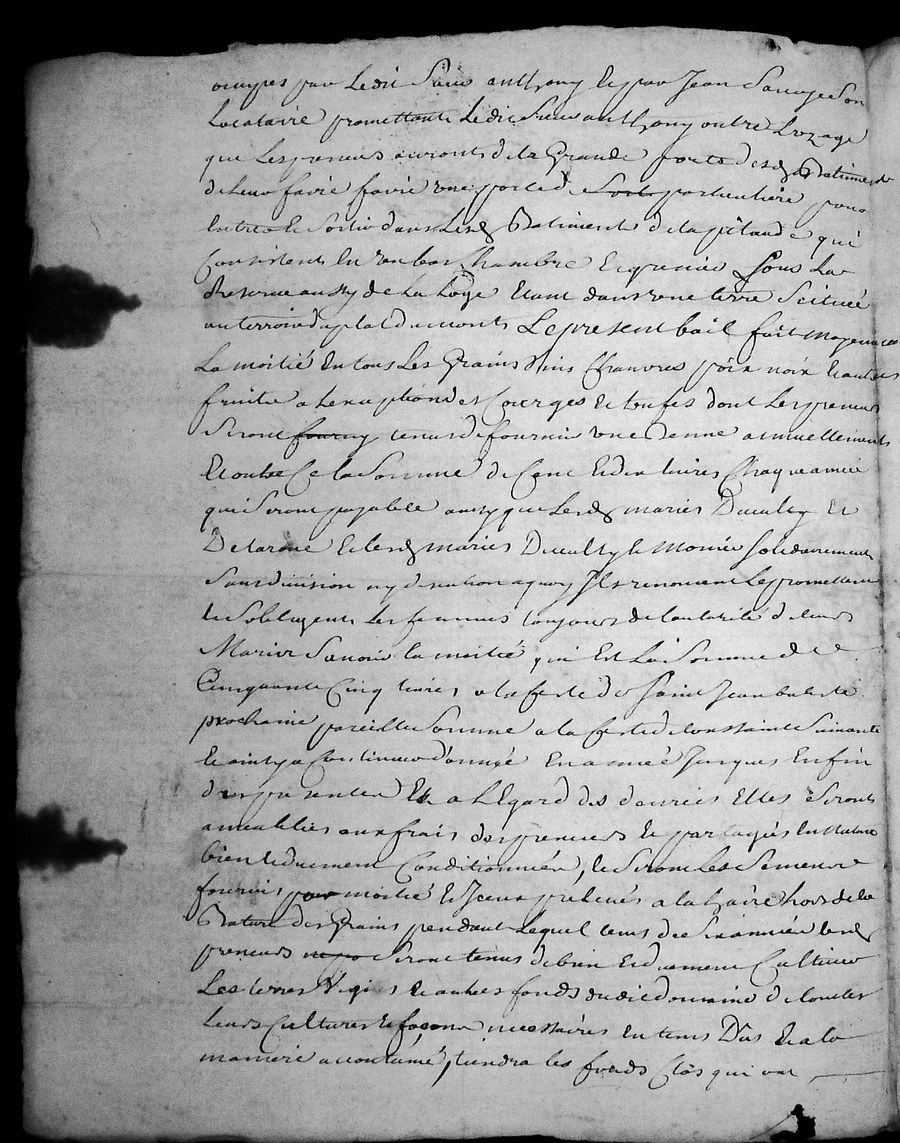 occupes par Ledit Sieur anthony et par Jean Sauvage Son
Locataire promettant Ledit Sieur anthony outre Luzage
que Les preneurs auront de la Grande porte desd Batiments
de leur faire faire une porte de Sorte particuliere pour
Entrer et Sortir dans Lesd Batiments de la pitaude qui
Consistent En un bas Chambre et grenier Sous La
Reserve aussy de La Loge Etant dans une terre Scituée
au terroir du plat du monts Le present bail fait moyennant
La moitié En tous Les Grains Vins Chanvres poix noix Et autres
fruits a Lexception des Courges et toufes dont Les preneurs
Seront fourny tenus de fournir une annuellement
Et outre Ce la Somme de Cent Et dix livres Chaque année
qui Seront payable aussy que Lesd mariés Et
Delarue Et lesd mariés Le Monier Solidairement
Sans division ny a quoy Ils renoncent Le promettant
et Sobligent Les femmes toujours de lautorité de leurs
Maris Savoir la moitié qui Est La Somme de
Cinquante Cinq livres a la feste de Saint Jean batiste
prochaine pareille Somme a la feste de toussaints Suivante
Et ainsy a Continuer d'année En année Jusques En fin
du present Et a L'Egard des denrées Elles Seront
ameublies aux frais des preneurs et partagées En Nature
bien Et duement Conditionnées, et Seront Les Semences
fournis par moitié Et Iceux prelevés a la haire hors de la
Bature des Grains pendant Lequel tems de Six années lesd
preneurs Seront tenus de bien Et duement Cultiver
Les terres Vignes Et autres fonds dudit domaine de toutes
Leurs Cultures et façons necessaires En tems Dus Et a la
maniere accoutumé, tiendra les fonds Clos qui ont